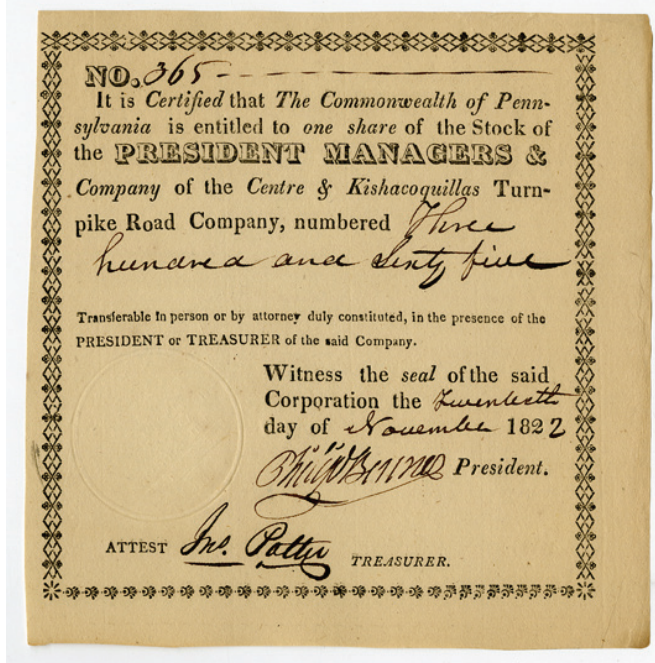 NO. 365
It is Certified that The Commonwealth of Penn-
sylvania is entitled to one share of the Stock of
the PRESIDENT MANAGERS &
Company of the Centre & Kishacoquillas Turn-
pike Road Company, numbered Three
hundred and Sixty five
Transferable in person or by attorney duly constituted, in the presence of the
PRESIDENT or TREASURER of the said Company.
Witness the seal of the said
Corporation the Twentieth
day of November 1822
Philip Benner President.
ATTEST Jno. Potter TREASURER.